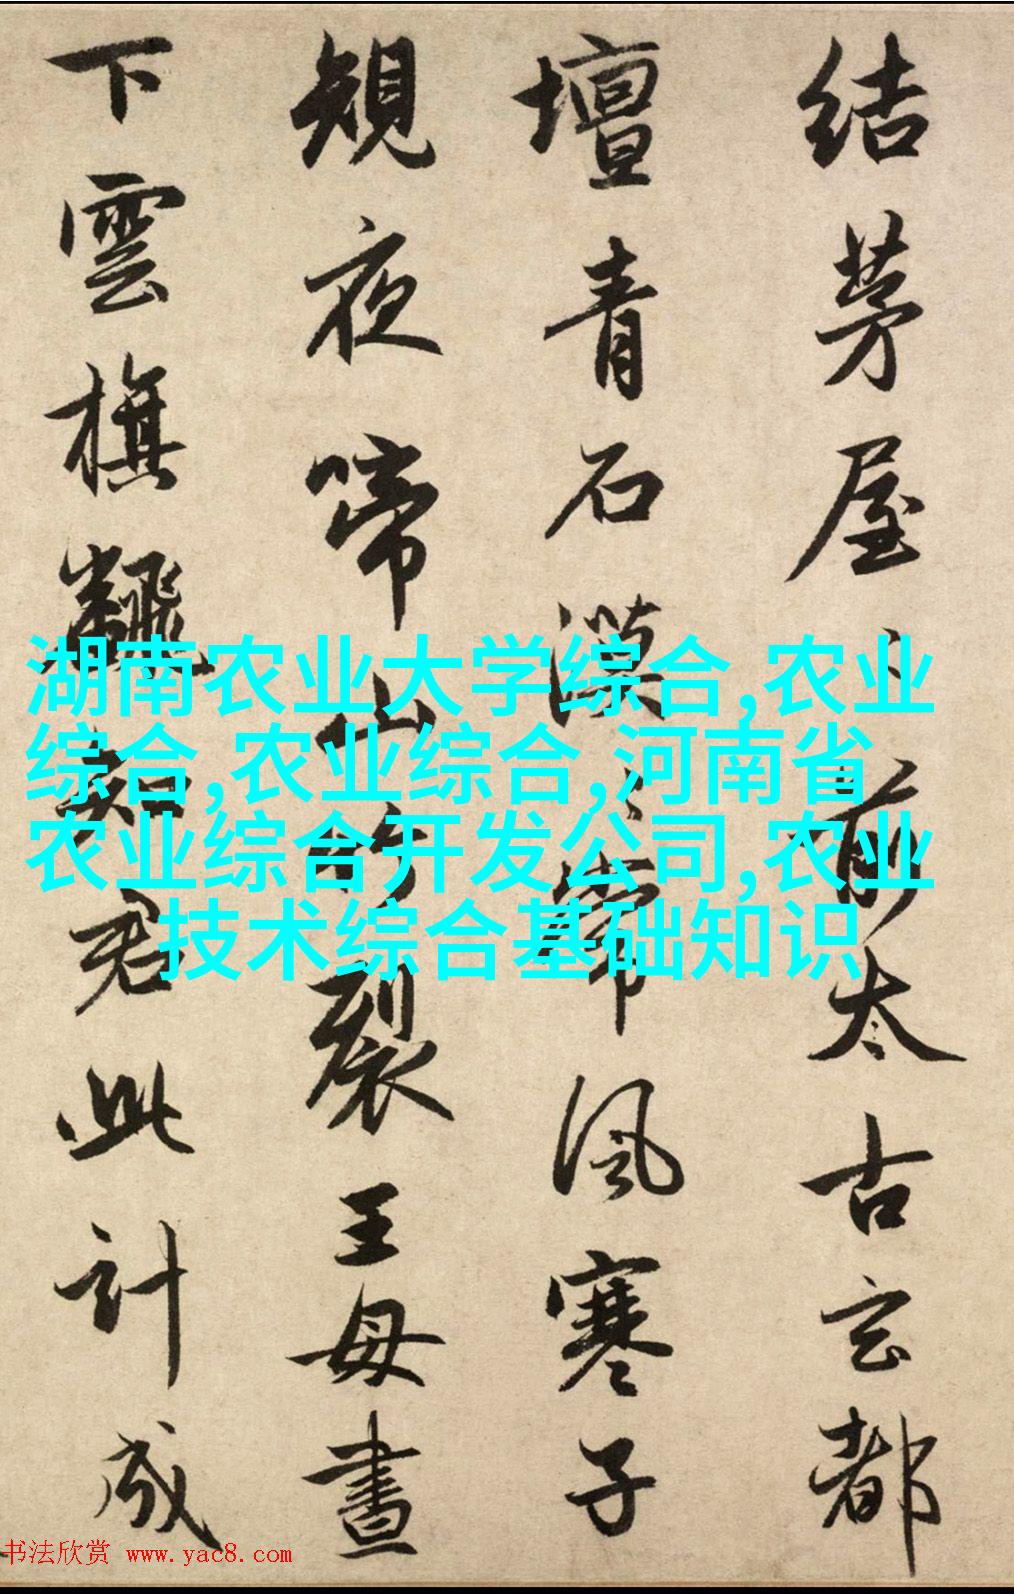 結茅屋〻前太古玄都
壇青石漠〻常風寒子
規夜啼山竹裂王母晝
下雲旗飜知君此計成
湖南农业大学综合,农业
综合,农业综合,河南省
农业综合开发公司,农业
技术综合基础知识
书法欣赏 www.yac8.com